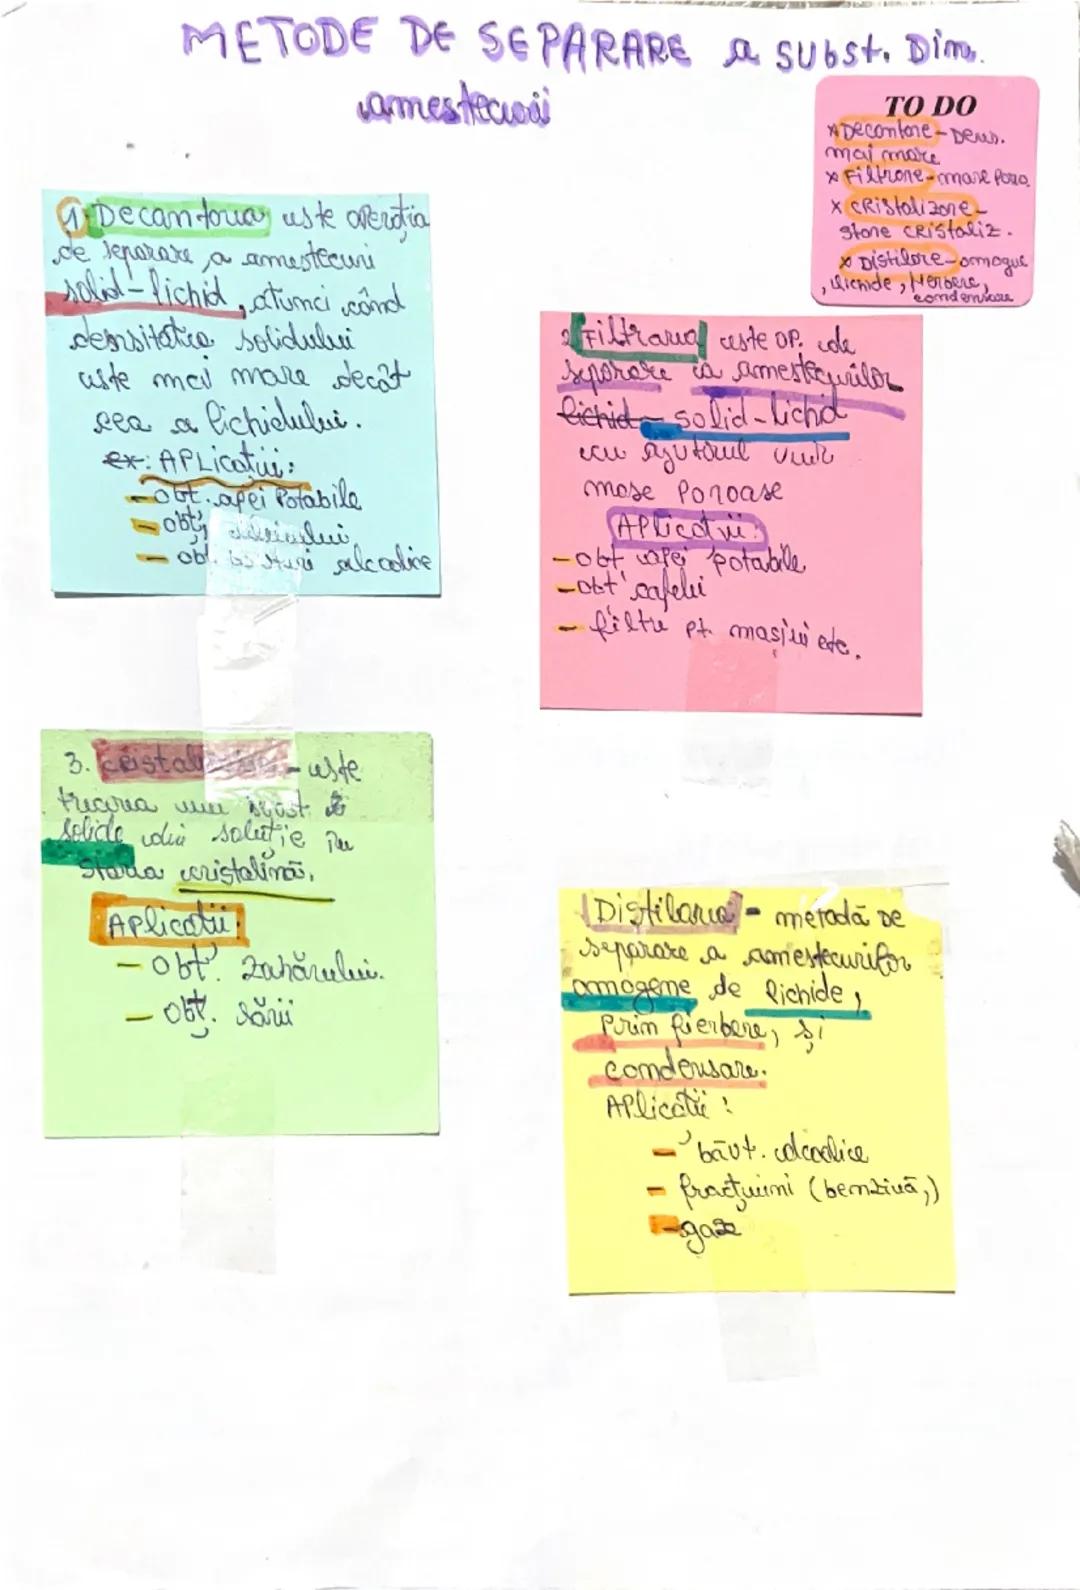 METODE DE SEPARARE a subst. Din
amestecuri
TO DO
x Decantare - Dens.
mai mare
x Filtrare - mase poro.
x CRistalizare -
stare CRistaliz.
x Distilare - omogue
, lichide, fierbere,
condensare
1. Decantarea este operația
de separare a amestecuri
solid-lichid, atunci când
densitatea solidului
este mai mare decât
cea a lichidului.
ex: APLicații:
- obt. apei Potabile
- obț.
- obț. alcoolice
2. Filtrarea este OP. de
separare a amestecurilor
lichid - solid-lichid
cu ajutorul unor
mase Poroase
Aplicații:
- obt apei potabile
- obt cafelei
- filtre pt. mașini etc.
3. - este
trecerea unei
solide din soluție în
starea cristalină.
APlicații:
- obț. zahărului.
- obț. sării
Distilarea - metodă de
separare a amestecurilor
omogene de lichide,
Prin fierbere, și
condensare.
APlicații:
- băut. alcoolice
- fracțiuni (benzină,)
- gaze